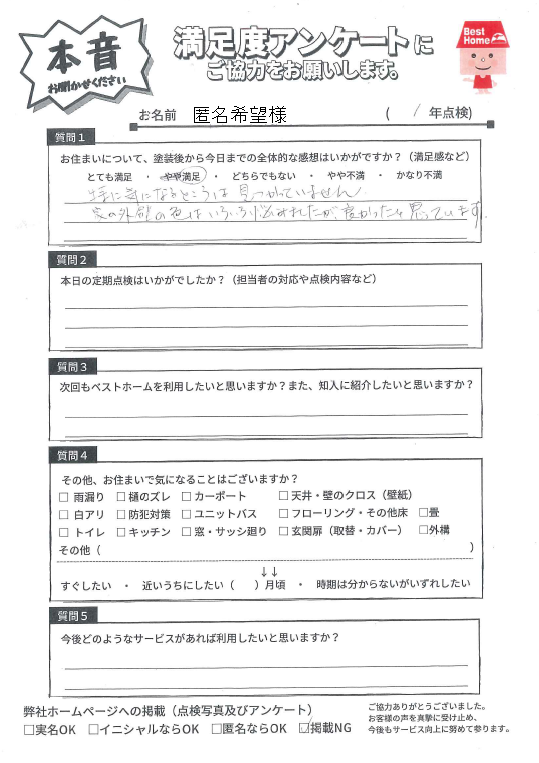 本音
お聞かせください
満足度アンケートに
ご協力をお願いします。
Best Home
お名前 匿名希望様 ( / 年点検)
質問1
お住まいについて、塗装後から今日までの全体的な感想はいかがですか？（満足感など）
とても満足 ・ やや満足 ・ どちらでもない ・ やや不満 ・ かなり不満
特に気になるところは見つかっていません。
家の外壁の色はいろいろ悩みましたが、良かったと思っています。
質問2
本日の定期点検はいかがでしたか？（担当者の対応や点検内容など）
質問3
次回もベストホームを利用したいと思いますか？また、知人に紹介したいと思いますか？
質問4
その他、お住まいで気になることはございますか？
□ 雨漏り □ 樋のズレ □ カーポート □ 天井・壁のクロス（壁紙）
□ 白アリ □ 防犯対策 □ ユニットバス □ フローリング・その他床 □畳
□ トイレ □ キッチン □ 窓・サッシ廻り □ 玄関扉（取替・カバー） □外構
その他（ ）
↓↓
すぐしたい ・ 近いうちにしたい（ ）月頃 ・ 時期は分からないがいずれしたい
質問5
今後どのようなサービスがあれば利用したいと思いますか？
弊社ホームページへの掲載（点検写真及びアンケート）
□実名OK □イニシャルならOK □匿名ならOK ☑掲載NG
ご協力ありがとうございました。
お客様の声を真摯に受け止め、
今後もサービス向上に努めて参ります。